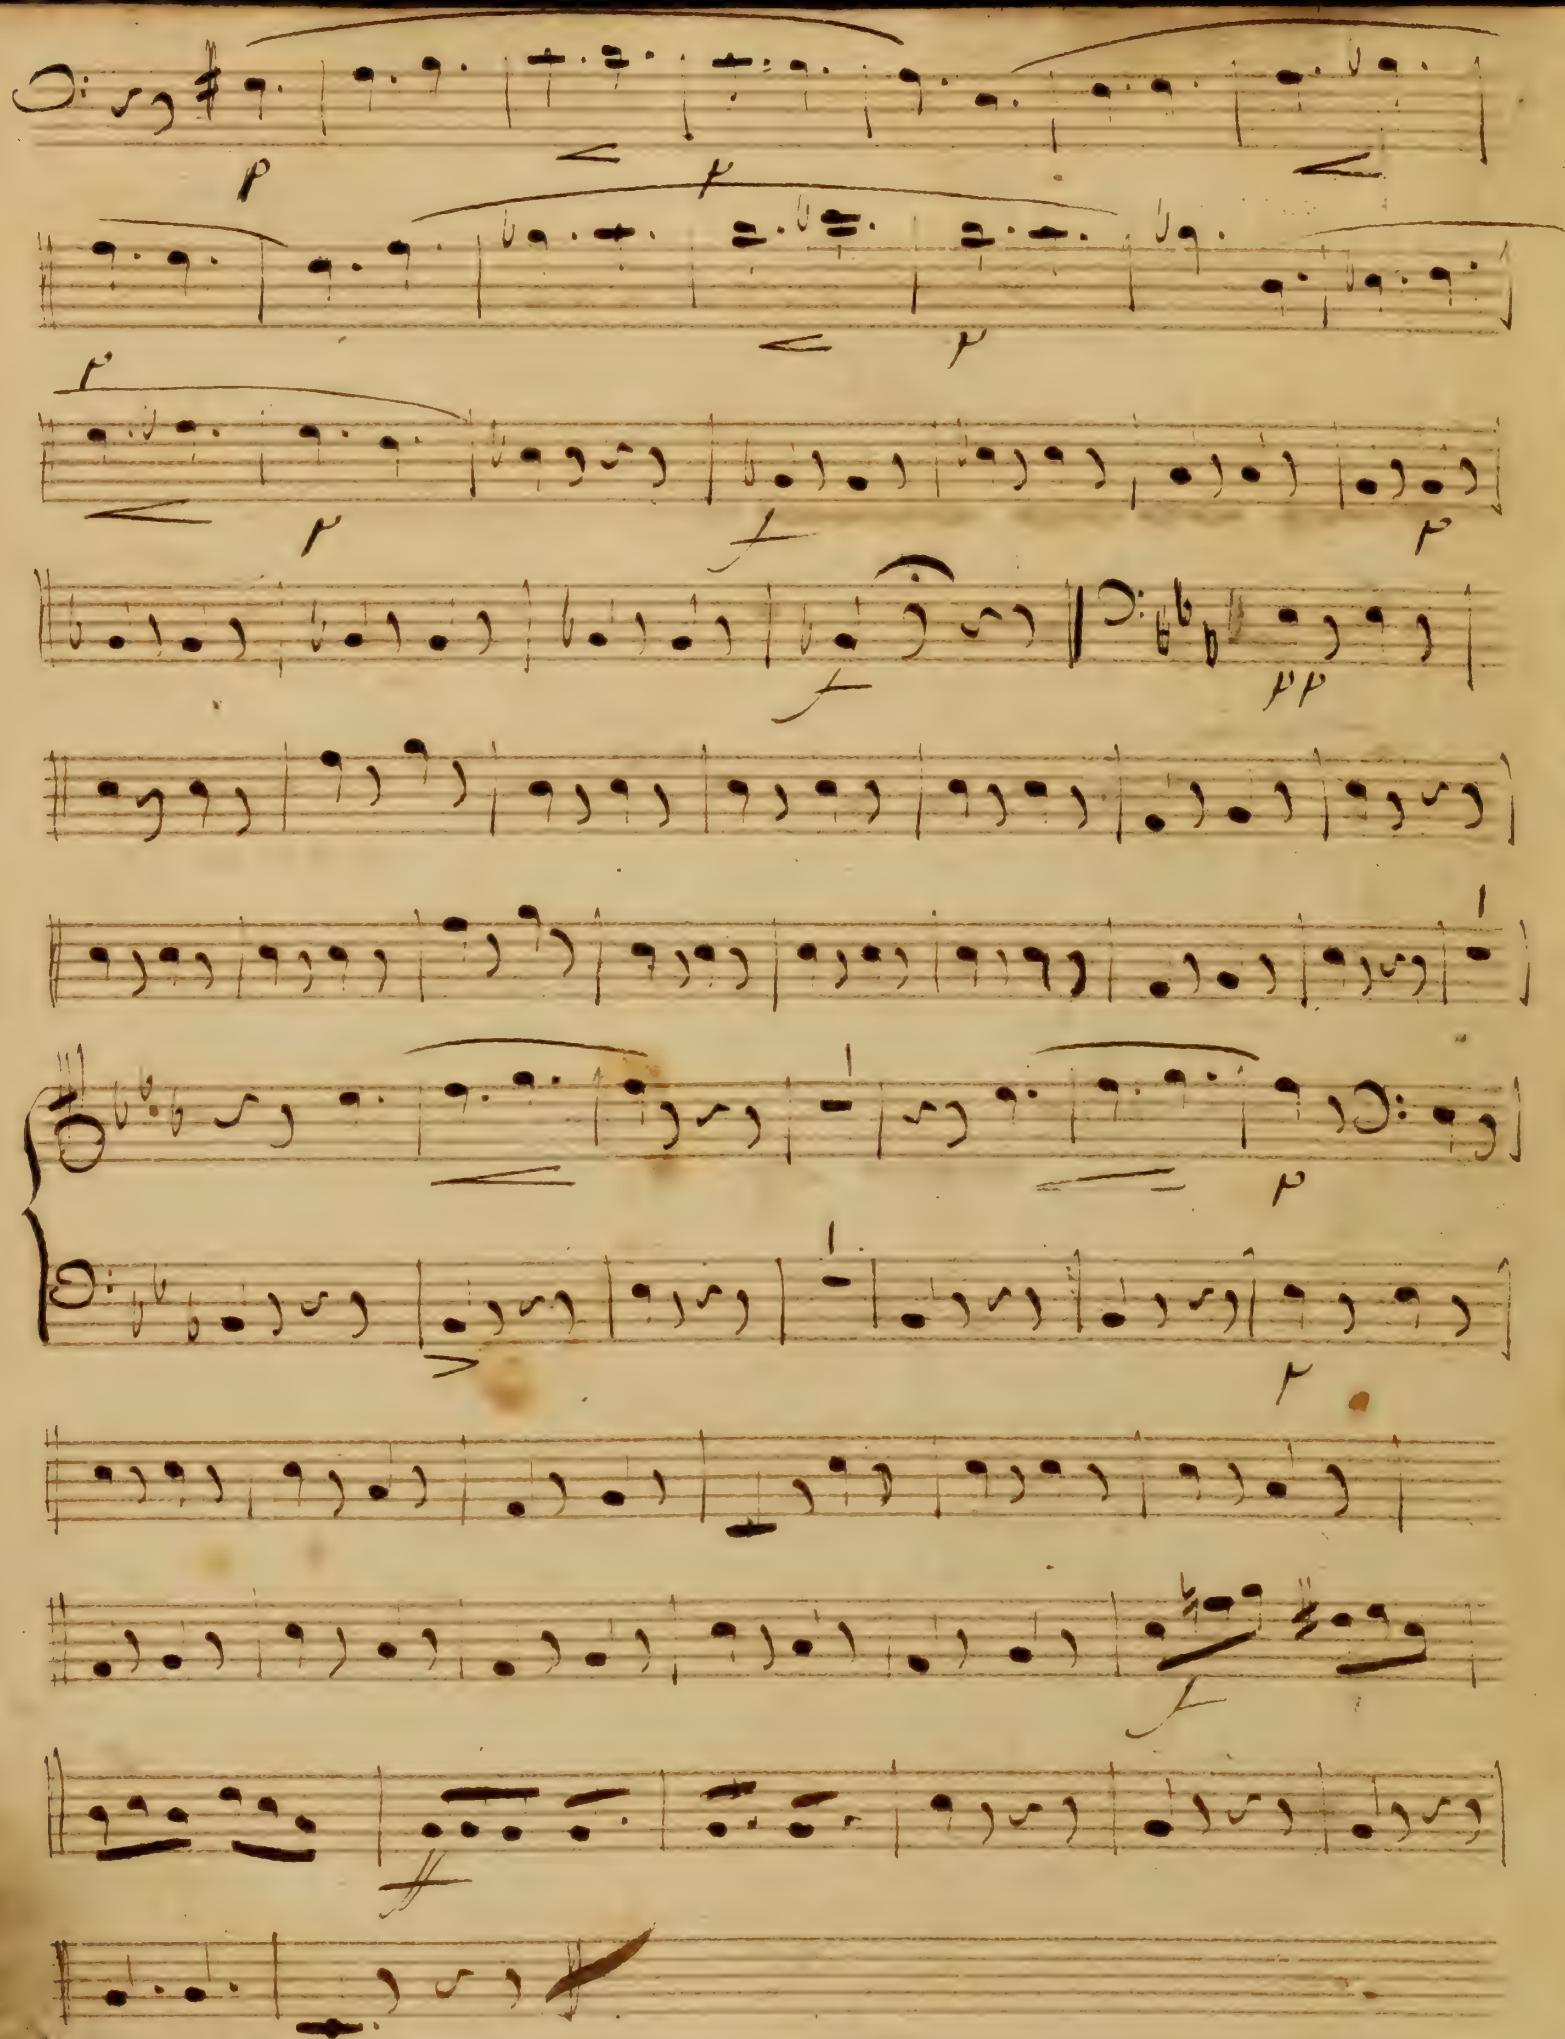 p p
p p
p f p
f pp
1
1
p
1
p
f
ff